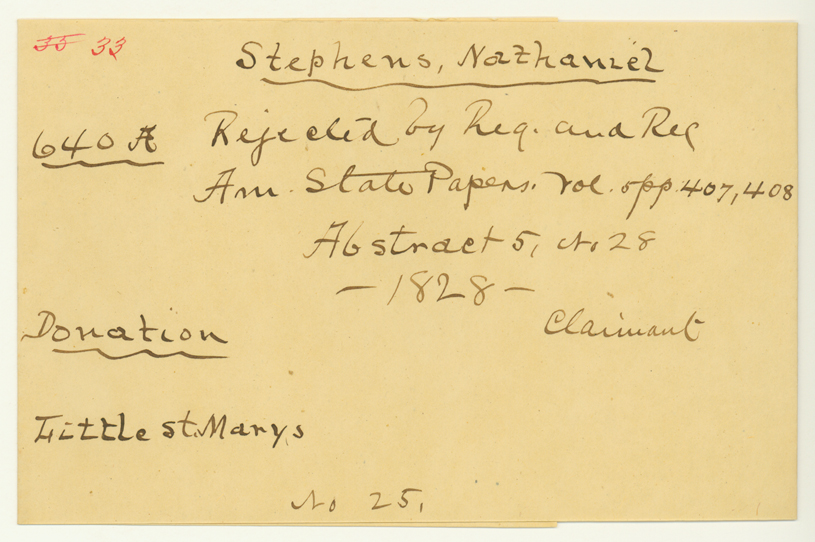 35 33
Stephens, Nathaniel
640 A Rejected by Reg. and Rec
Am. State Papers. Vol. 5 pp. 407, 408
Abstract 5, No 28
— 1828 —
Donation Claimant
Little St. Marys
No 25.